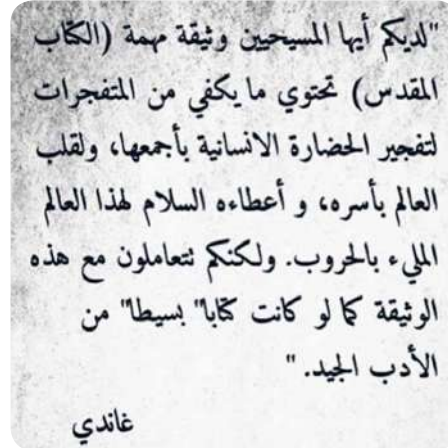 "لديكم أيها المسيحيين وثيقة مهمة (الكتاب
المقدس) تحتوي ما يكفي من المتفجرات
لتفجير الحضارة الانسانية بأجمعها، ولقلب
العالم بأسره، و أعطاءه السلام لهذا العالم
المليء بالحروب. ولكنكم نتعاملون مع هذه
الوثيقة كما لو كانت كتابا" بسيطا" من
الأدب الجيد. "
غاندي